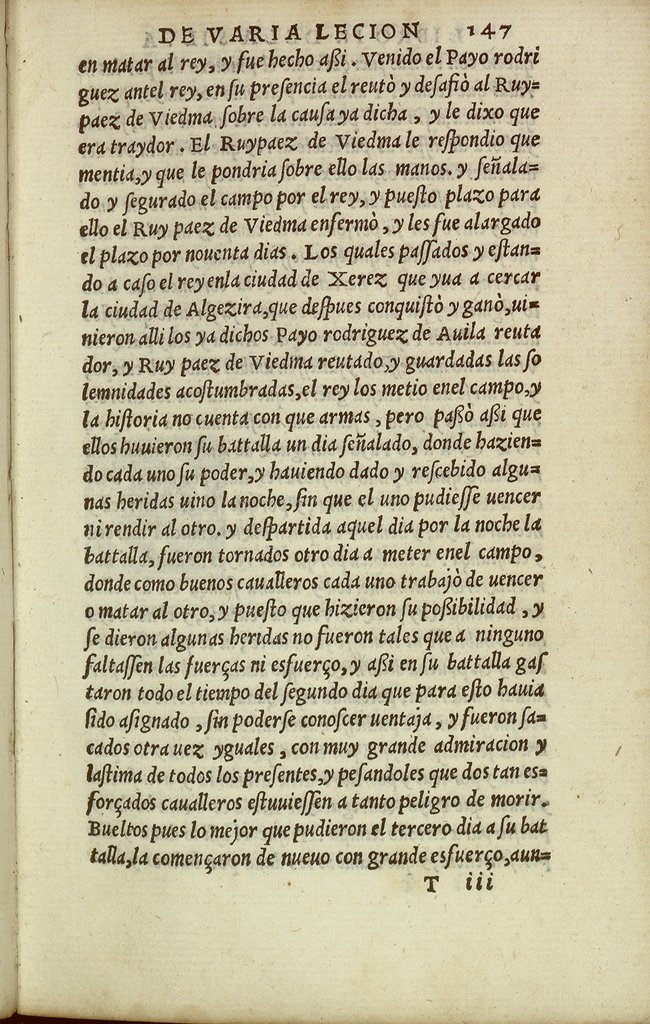 DE VARIA LECION 147
en matar al rey, y fue hecho aßi. Venido el Payo rodri
guez antel rey, en su preſencia el reutò y deſafiò al Ruy=
paez de Viedma ſobre la cauſa ya dicha, y le dixo que
era traydor. El Ruypaez de Viedma le reſpondio que
mentia, y que le pondria ſobre ello las manos. y ſeñala=
do y ſegurado el campo por el rey, y pueſto plazo para
ello el Ruy paez de Viedma enfermò, y les fue alargado
el plazo por nouenta dias. Los quales paſſados y eſtan=
do a caſo el rey enla ciudad de Xerez que yua a cercar
la ciudad de Algezira, que deſpues conquiſtò y ganò, ui=
nieron alli los ya dichos Payo rodriguez de Auila reuta
dor, y Ruy paez de Viedma reutado, y guardadas las ſo
lemnidades acoſtumbradas, el rey los metio enel campo, y
la hiſtoria no cuenta con que armas, pero paßò aßi que
ellos huuieron ſu battalla un dia ſeñalado, donde hazien=
do cada uno ſu poder, y hauiendo dado y reſcebido algu=
nas heridas uino la noche, ſin que el uno pudieſſe uencer
ni rendir al otro. y deſpartida aquel dia por la noche la
battalla, fueron tornados otro dia a meter enel campo,
donde como buenos caualleros cada uno trabajò de uencer
o matar al otro, y pueſto que hizieron ſu poßibilidad, y
ſe dieron algunas heridas no fueron tales que a ninguno
faltaſſen las fuerças ni esfuerço, y aßi en ſu battalla gaſ
taron todo el tiempo del ſegundo dia que para eſto hauia
ſido aſignado, ſin poderſe conoſcer uentaja, y fueron ſa=
cados otra uez yguales, con muy grande admiracion y
laſtima de todos los preſentes, y peſandoles que dos tan eſ=
forçados caualleros eſtuuieſſen a tanto peligro de morir.
Bueltos pues lo mejor que pudieron el tercero dia a ſu bat
talla, la començaron de nueuo con grande esfuerço, aun=
T iii